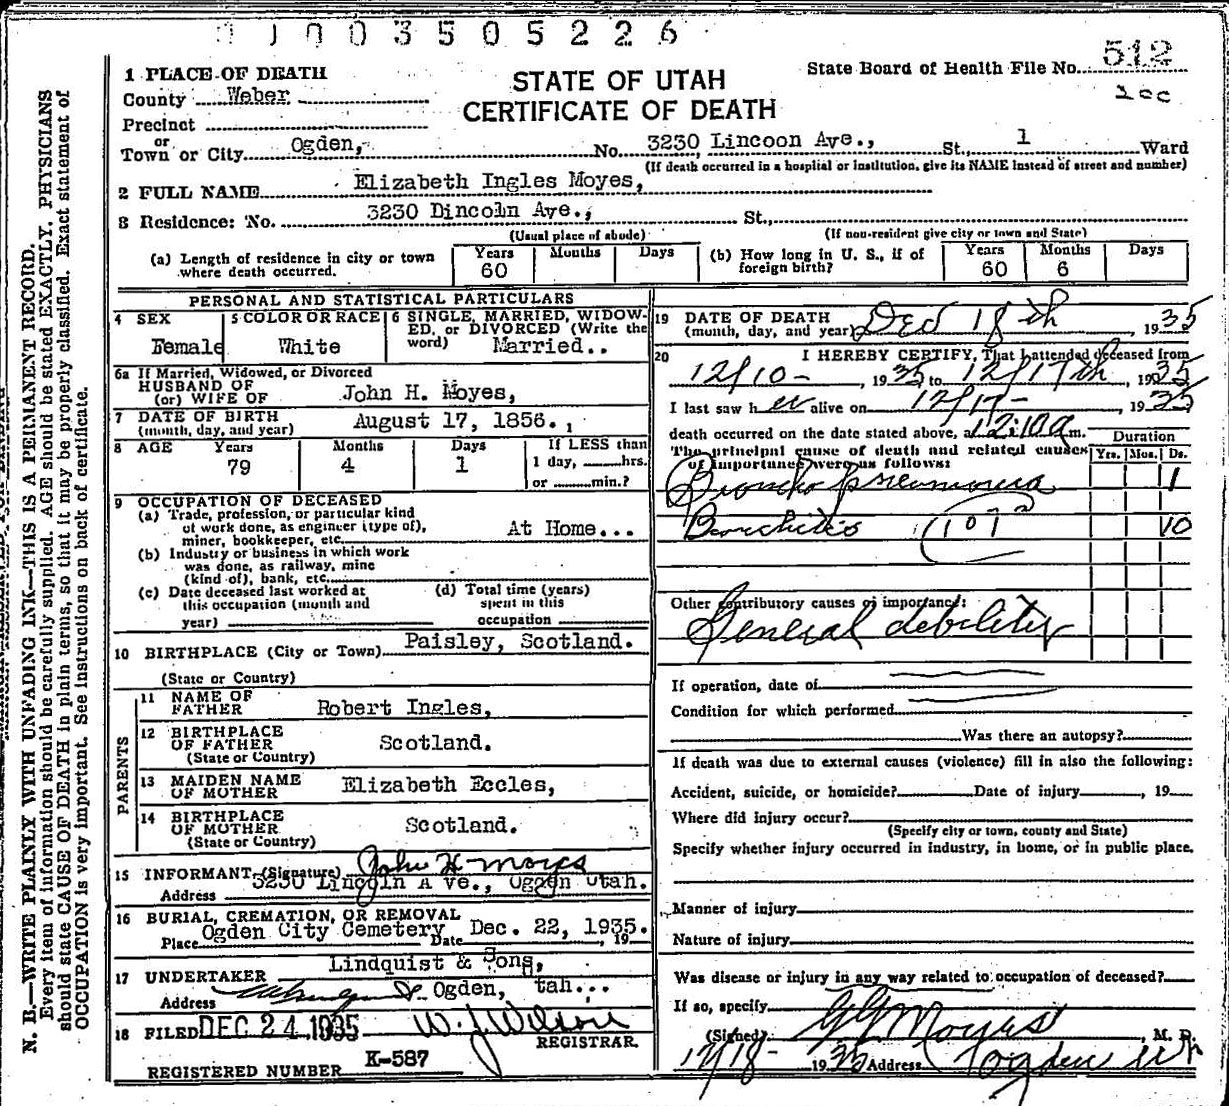 0 1 0 0 3 5 0 5 2 2 6
1 PLACE OF DEATH
County Weber
STATE OF UTAH
CERTIFICATE OF DEATH
State Board of Health File No. 512
200
Precinct
or
Town or City Ogden, No. 3230 Lincoon Ave., St., 1 Ward
(If death occurred in a hospital or institution, give its NAME instead of street and number)
2 FULL NAME Elizabeth Ingles Moyes,
3 Residence: No. 3230 Dincoln Ave., St.,
(Usual place of abode) (If non-resident give city or town and State)
(a) Length of residence in city or town where death occurred. Years 60 Months Days
(b) How long in U. S., if of foreign birth? Years 60 Months 6 Days
PERSONAL AND STATISTICAL PARTICULARS
4 SEX Female
5 COLOR OR RACE White
6 SINGLE, MARRIED, WIDOWED, or DIVORCED (Write the word) Married..
6a If Married, Widowed, or Divorced
HUSBAND OF
(or) WIFE OF John H. Moyes,
7 DATE OF BIRTH
(month, day, and year) August 17, 1856.,
8 AGE Years 79 Months 4 Days 1
If LESS than
1 day, hrs.
or min.?
9 OCCUPATION OF DECEASED
(a) Trade, profession, or particular kind
of work done, as engineer (type of),
miner, bookkeeper, etc. At Home...
(b) Industry or business in which work
was done, as railway, mine
(kind of), bank, etc.
(c) Date deceased last worked at
this occupation (month and
year)
(d) Total time (years)
spent in this
occupation
10 BIRTHPLACE (City or Town) Paisley, Scotland.
(State or Country)
PARENTS
11 NAME OF
FATHER Robert Ingles,
12 BIRTHPLACE
OF FATHER Scotland.
(State or Country)
13 MAIDEN NAME
OF MOTHER Elizabeth Eccles,
14 BIRTHPLACE
OF MOTHER Scotland.
(State or Country)
15 INFORMANT (Signature) John H Moyes
Address 3230 Lincoln A ve., Ogden Utah.
16 BURIAL, CREMATION, OR REMOVAL
Place Ogden City Cemetery Date Dec. 22, 1935. , 19
17 UNDERTAKER Lindquist & Sons,
Address Ogden, tah...
18 FILED DEC 24 1935 W. J. Wilson
REGISTRAR.
REGISTERED NUMBER K-587
19 DATE OF DEATH
(month, day, and year) Dec 18th , 1935
20 I HEREBY CERTIFY, That I attended deceased from
12/10- , 1935 to 12/17th , 1935
I last saw her alive on 12/17- , 1935
death occurred on the date stated above, at 12:10a m.
The principal cause of death and related causes
of importance were as follows:
Duration
Yrs. Mos. Ds.
Broncho pneumonia 1
Bronchitis 107a 10
Other contributory causes of importance:
General debility
If operation, date of
Condition for which performed
Was there an autopsy?
If death was due to external causes (violence) fill in also the following:
Accident, suicide, or homicide? Date of injury , 19
Where did injury occur?
(Specify city or town, county and State)
Specify whether injury occurred in industry, in home, or in public place.
Manner of injury
Nature of injury
Was disease or injury in any way related to occupation of deceased?
If so, specify
(Signed) G G Moyes , M. D.
12/18- 1935 Address Ogden Ut
N. B.—WRITE PLAINLY WITH UNFADING INK—THIS IS A PERMANENT RECORD.
Every item of information should be carefully supplied. AGE should be stated EXACTLY. PHYSICIANS
should state CAUSE OF DEATH in plain terms, so that it may be properly classified. Exact statement of
OCCUPATION is very important. See instructions on back of certificate.